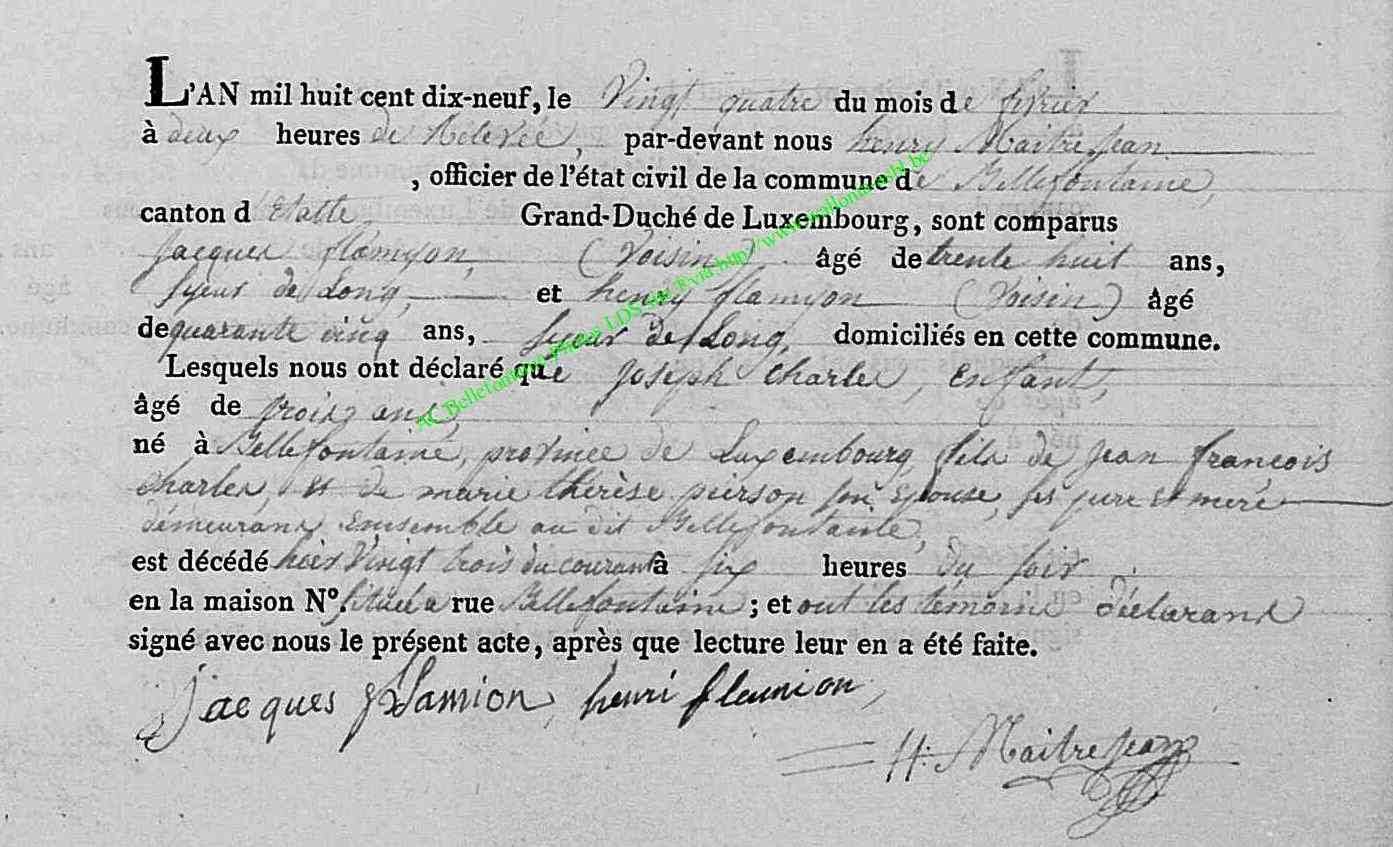 L'AN mil huit cent dix-neuf, le Vingt quatre du mois de fevrier
à deux heures de Relevée, par-devant nous henry MaitreJean
, officier de l'état civil de la commune de Bellefontaine,
canton d'Etalle, Grand-Duché de Luxembourg, sont comparus
Jacques flamyon, (Voisin) âgé de trente huit ans,
syeur de Long, et henry flamyon (Voisin) âgé
de quarante cinq ans, syeur de Long, domiciliés en cette commune.
Lesquels nous ont déclaré que Joseph Charles, enfant,
âgé de trois ans,
né à Bellefontaine, province de Luxembourg fils de Jean francois
charles, et de marie thérèse pierson son Epouse, ses pere et mere
demeurans Ensemble au dit Bellefontaine,
est décédé hier Vingt trois du courant à six heures du soir
en la maison Nº. située rue Bellefontaine ; et ont les témoins déclarans
signé avec nous le présent acte, après que lecture leur en a été faite.
Jacques flamion, henri flamion,
H: MaitreJean
AC Bellefontaine